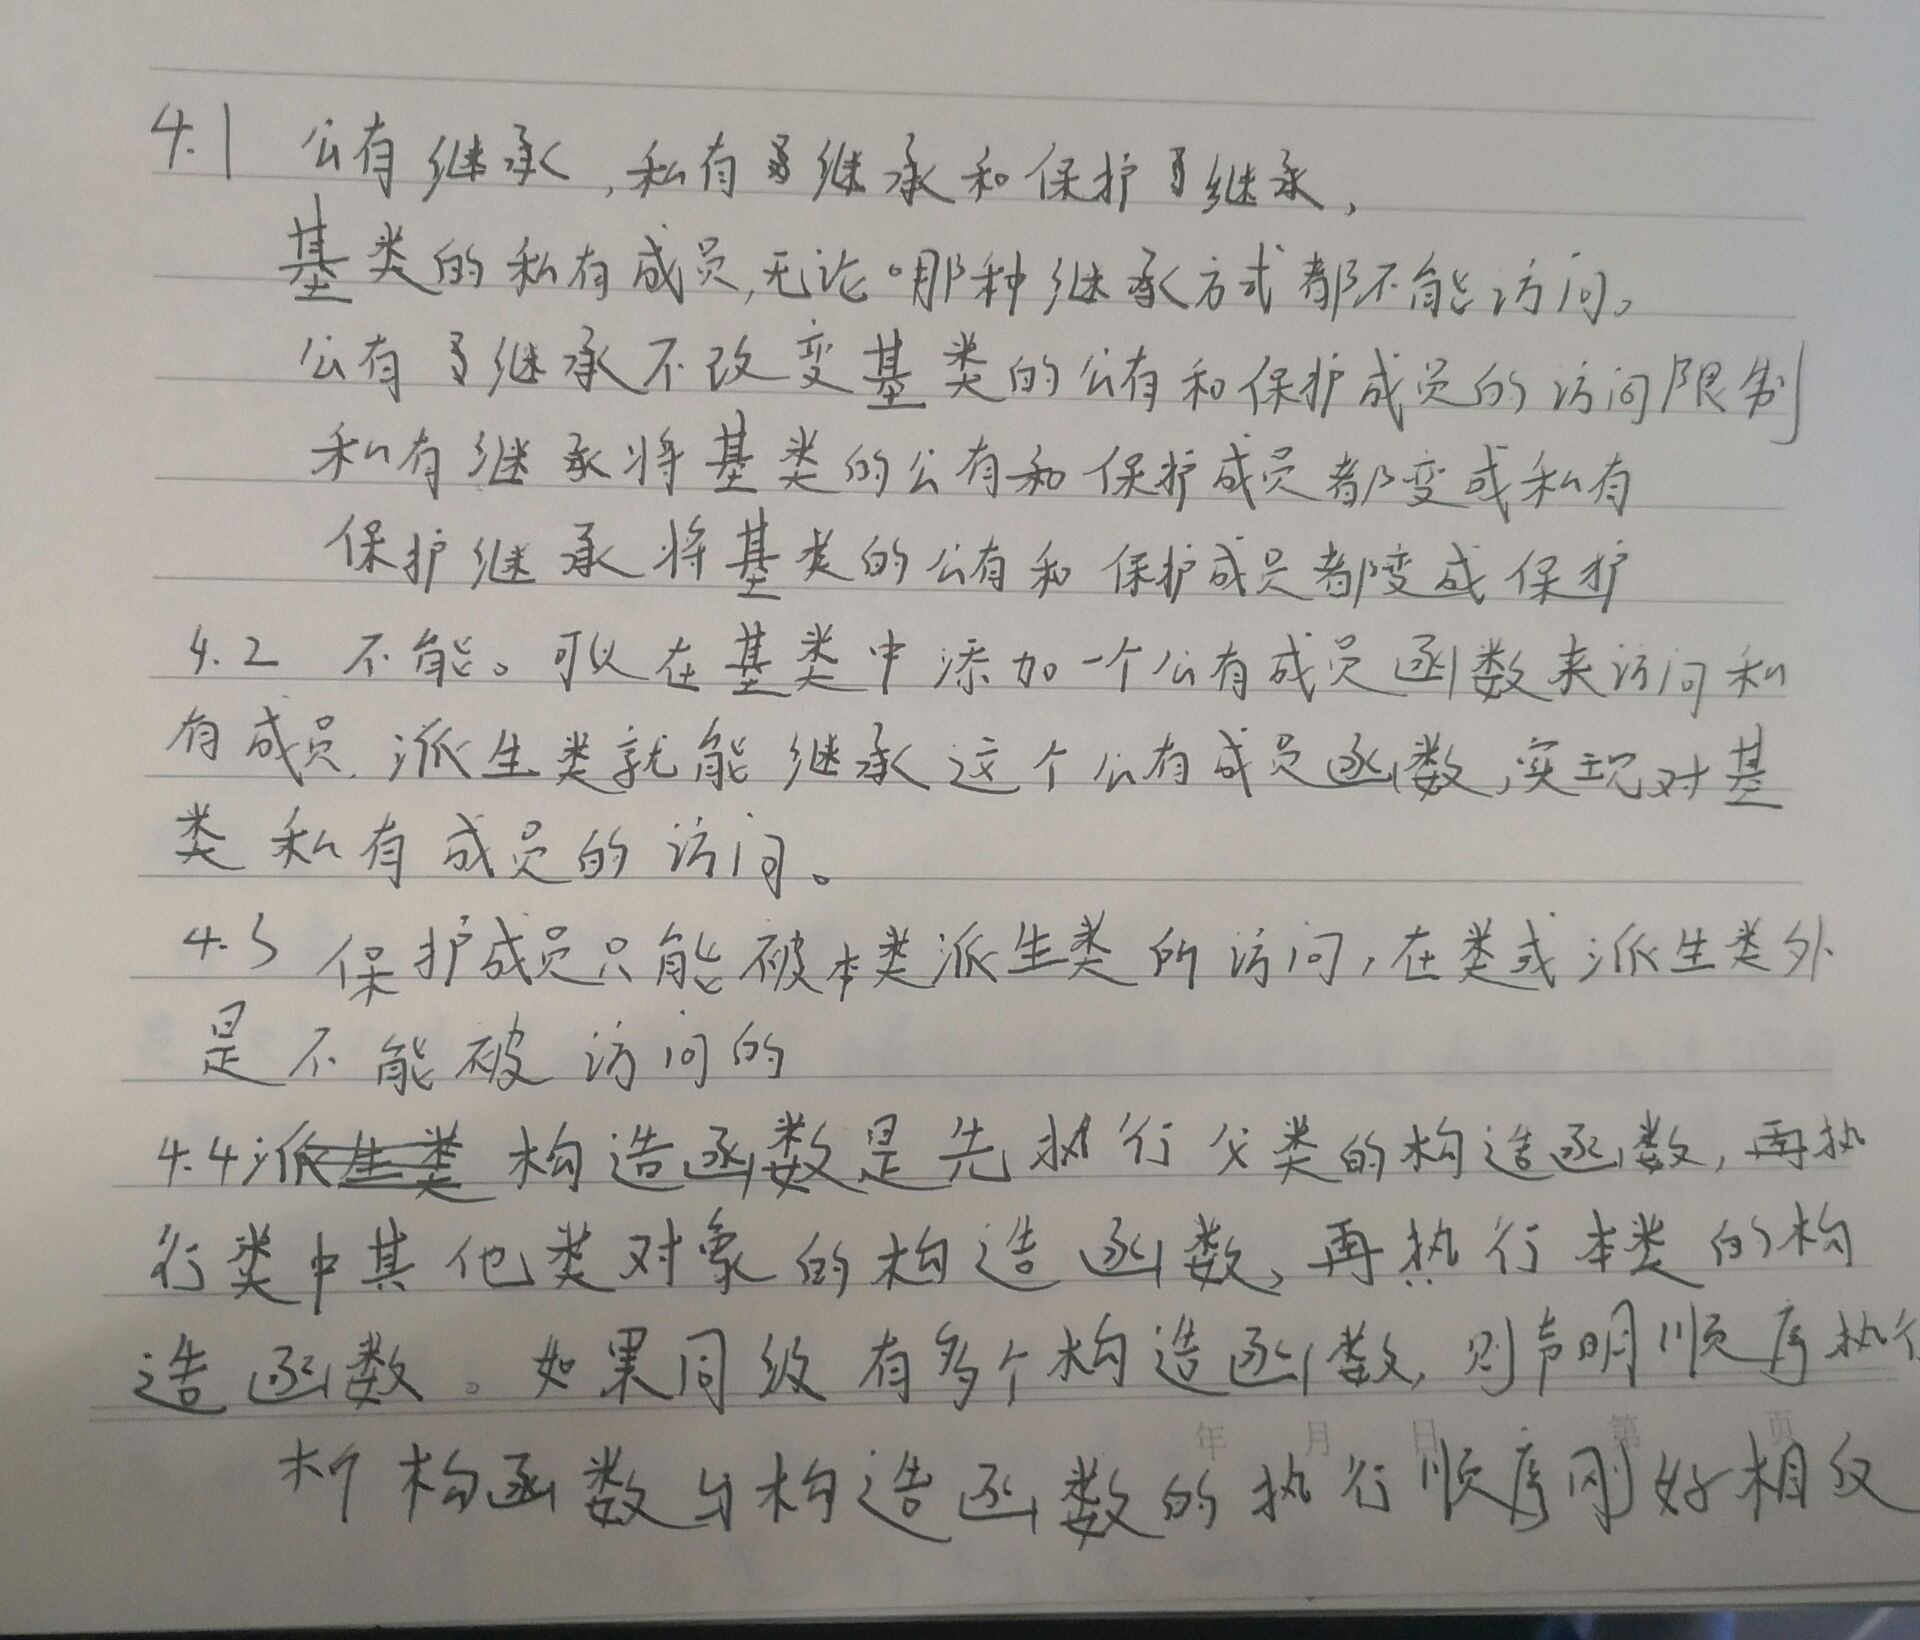 4.1 公有继承,私有继承和保护继承,
基类的私有成员,无论哪种继承方式都不能访问。
公有继承不改变基类的公有和保护成员的访问限制
私有继承将基类的公有和保护成员都变成私有
保护继承将基类的公有和保护成员都变成保护
4.2 不能。可以在基类中添加一个公有成员函数来访问私
有成员.派生类就能继承这个公有成员函数,实现对基
类私有成员的访问。
4.3 保护成员只能被本类派生类所访问,在类或派生类外
是不能被访问的
4.4 构造函数是先执行父类的构造函数,再执
行类中其他类对象的构造函数,再执行本类的构
造函数。如果同级有多个构造函数,则声明顺序执行
年 月 日 第 页
析构函数与构造函数的执行顺序刚好相反